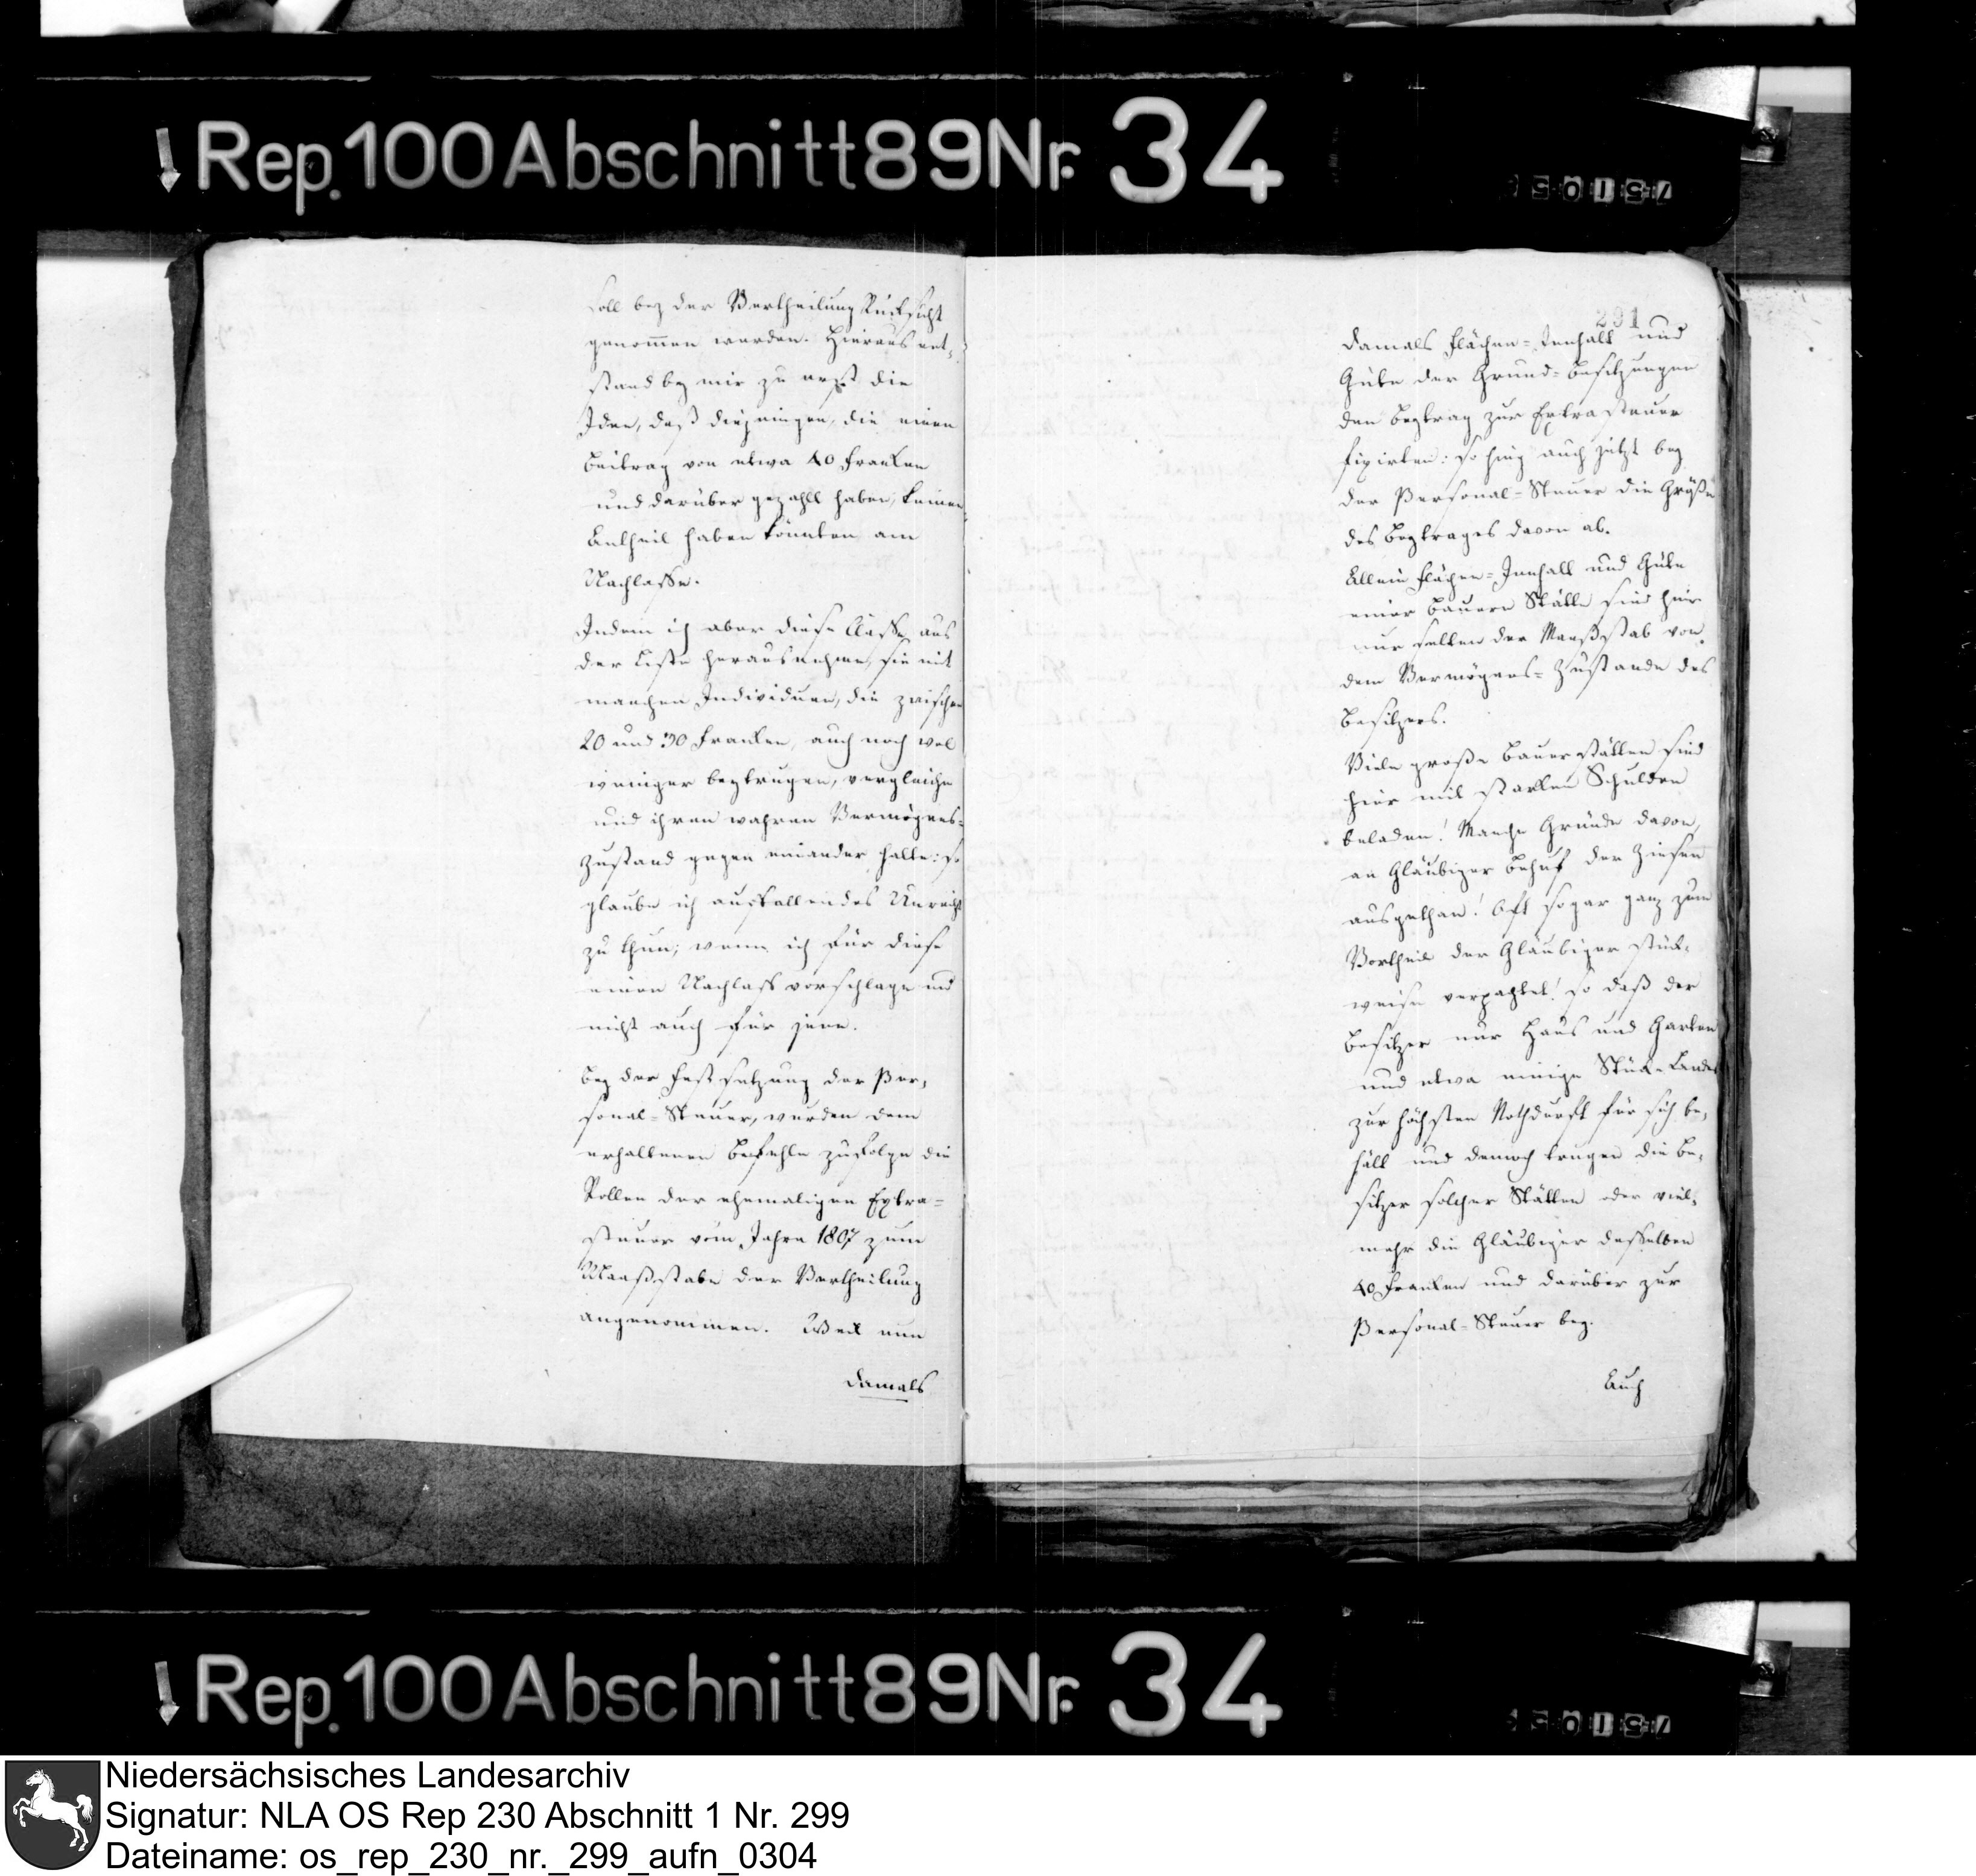 Rep. 100 Abschnitt 89 Nr. 34
soll bey der Vertheilung Rücksicht
genommen werden. Hieraus ent-
stand bey mir zu erst die
Idee, daß diejenigen, die einen
Beitrag von etwa 40 Franken
und darüber gezahlt haben, keinen
Antheil haben könnten am
Nachlasse.
Indem ich aber diese Classe aus
der Liste herausnehme, sie mit
manchen Individuen, die zwischen
20 und 30 Franken, auch noch wol
weniger beytrugen, vergleiche
und ihren wahren Vermögens-
zustand gegen einander halte: so
glaube ich auffallendes Unrecht
zu thun; wenn ich für diese
einen Nachlass vorschlage und
nicht auch für jene.
Bey der Festsetzung der Per-
sonal-Steuer, wurden dem
erhaltenen Befehle zufolge die
Rollen der ehemaligen Extra-
steuer vom Jahre 1807 zum
Maaßstabe der Vertheilung
angenommen. Weil nun
damals
291
damals Flächen-Innhalt und
Güte der Grund-Besitzungen
den Beytrag zur Extrasteuer
fixirten: so hing auch jetzt bey
der Personal-Steuer die Größe
des Beytrages davon ab.
Allein Flächen-Innhalt und Güte
einer Bauern Stätte sind hier
nur selten der Maaßstab von
dem Vermögens-Zustande des
Besitzers.
Viele große Bauerstätten sind
hier mit starken Schulden
beladen! Manche Gründe davon,
an Gläubiger Behuf der Zinsen
ausgethan! Oft sogar ganz zum
Vortheil der Gläubiger stück-
weise verpachtet! so daß der
Besitzer nur Haus und Garten
und etwa einige Stück Landes
zur höchsten Nothdurft für sich be-
hält und dennoch trugen die Be-
sitzer solcher Stätten oder viel-
mehr die Gläubiger desselben
40 Franken und darüber zur
Personal-Steuer bey.
Auch
Rep. 100 Abschnitt 89 Nr. 34
Niedersächsisches Landesarchiv
Signatur: NLA OS Rep 230 Abschnitt 1 Nr. 299
Dateiname: os_rep_230_nr._299_aufn_0304